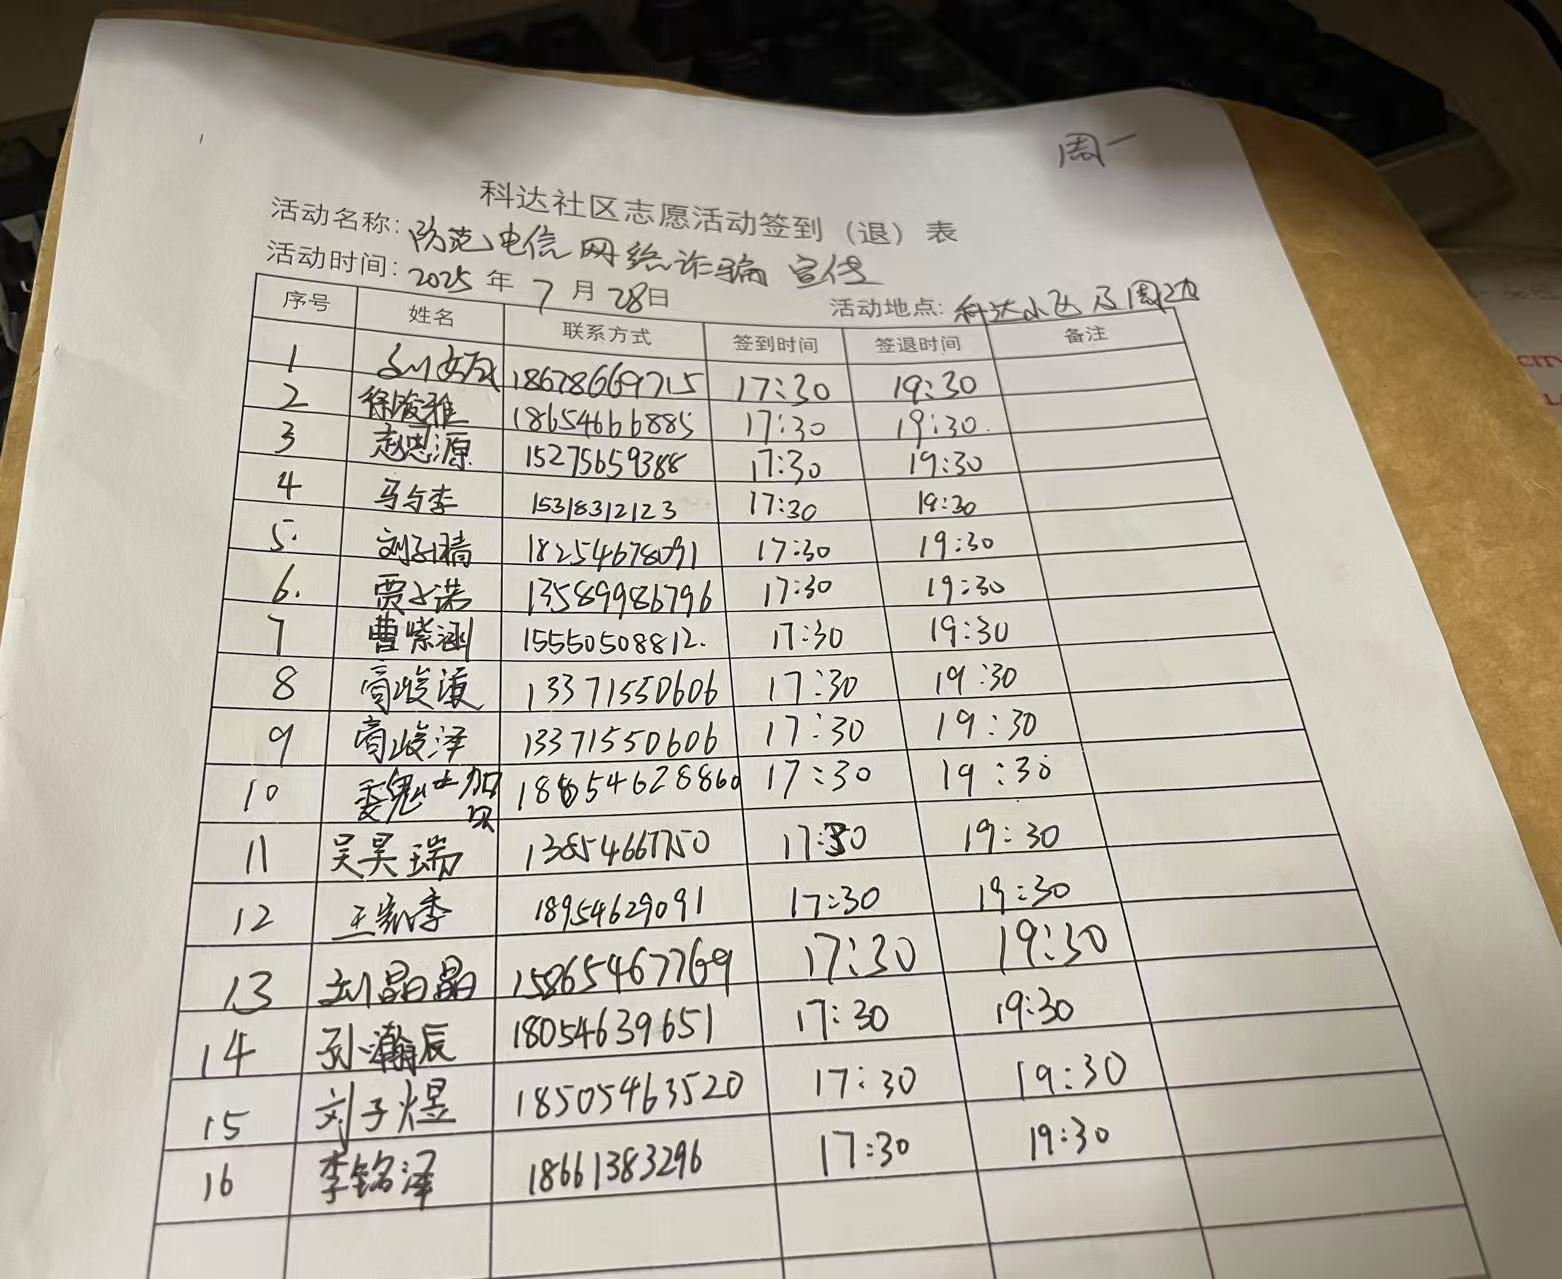 周一
科达社区志愿活动签到（退）表
活动名称: 防范电信网络诈骗 宣传
活动时间: 2025 年 7 月 28日 活动地点: 科达小区及周边
序号 姓名 联系方式 签到时间 签退时间 备注
1 18678669715 17:30 19:30
2 徐浚雅 18654666885 17:30 19:30.
3 赵思源 15275659388 17:30 19:30
4 马与李 15318312123 17:30 19:30
5. 刘子晴 18254678091 17:30 19:30
6. 贾子诺 13589986796 17:30 19:30
7 曹紫涵 15550508812. 17:30 19:30
8 13371550606 17:30 19:30
9 13371550606 17:30 19:30
10 18654628860 17:30 19:30
11 吴昊瑞 13854667750 17:30 19:30
12 18954629091 17:30 19:30
13 刘晶晶 15865467769 17:30 19:30
14 孙瀚辰 18054639651 17:30 19:30
15 刘子煜 18505463520 17:30 19:30
16 李铭泽 18661383296 17:30 19:30
CITY